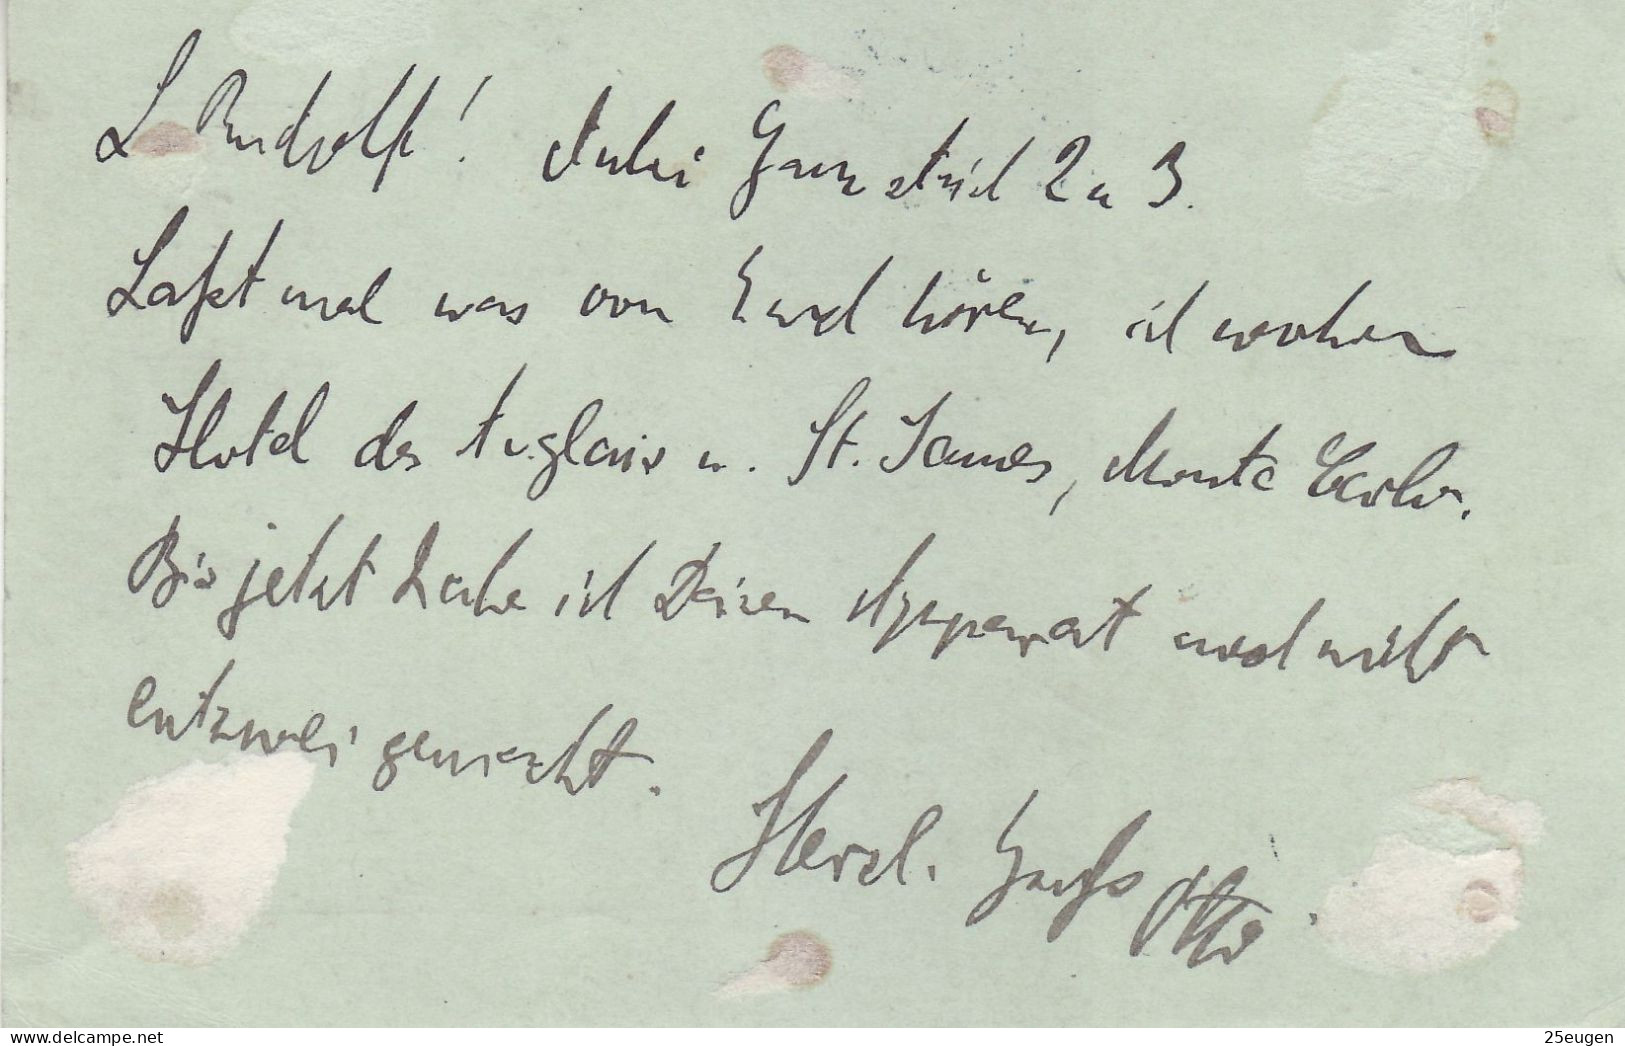 L. Rudolf! Anbei Ganzstück 2 u 3.
Laßt mal was von Euch hören, ich wohne
Hotel des Anglais u. St. James, Monte Carlo.
Bis jetzt habe ich Deinen Apparat noch nicht
entzwei gemacht.
Herzl. Gruß Otto.
delcampe.net
25eugen